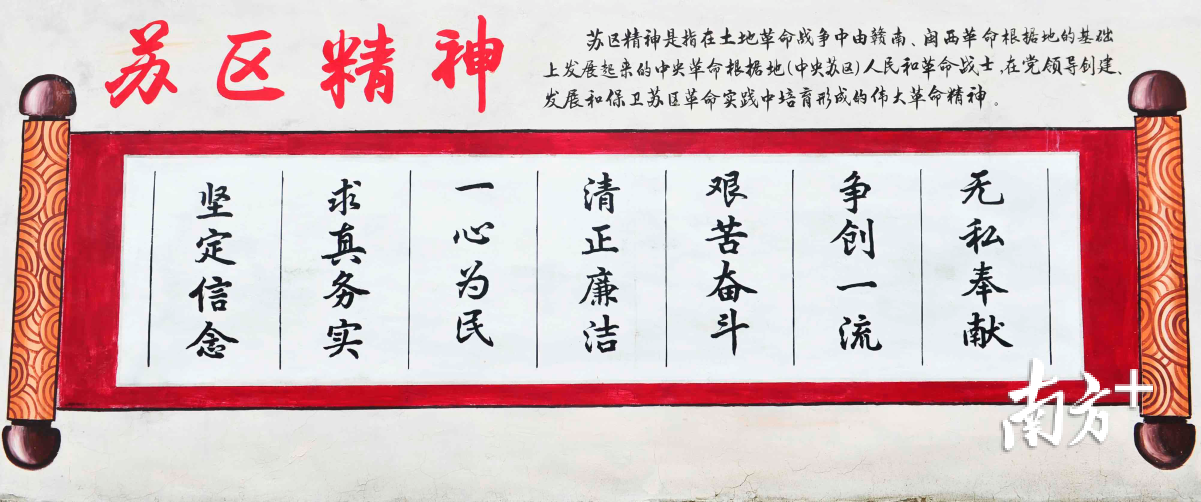 苏区精神
苏区精神是指在土地革命战争中由赣南、闽西革命根据地的基础
上发展起来的中央革命根据地(中央苏区)人民和革命战士,在党领导创建、
发展和保卫苏区革命实践中培育形成的伟大革命精神。
坚定信念
求真务实
一心为民
清正廉洁
艰苦奋斗
争创一流
无私奉献
南方+